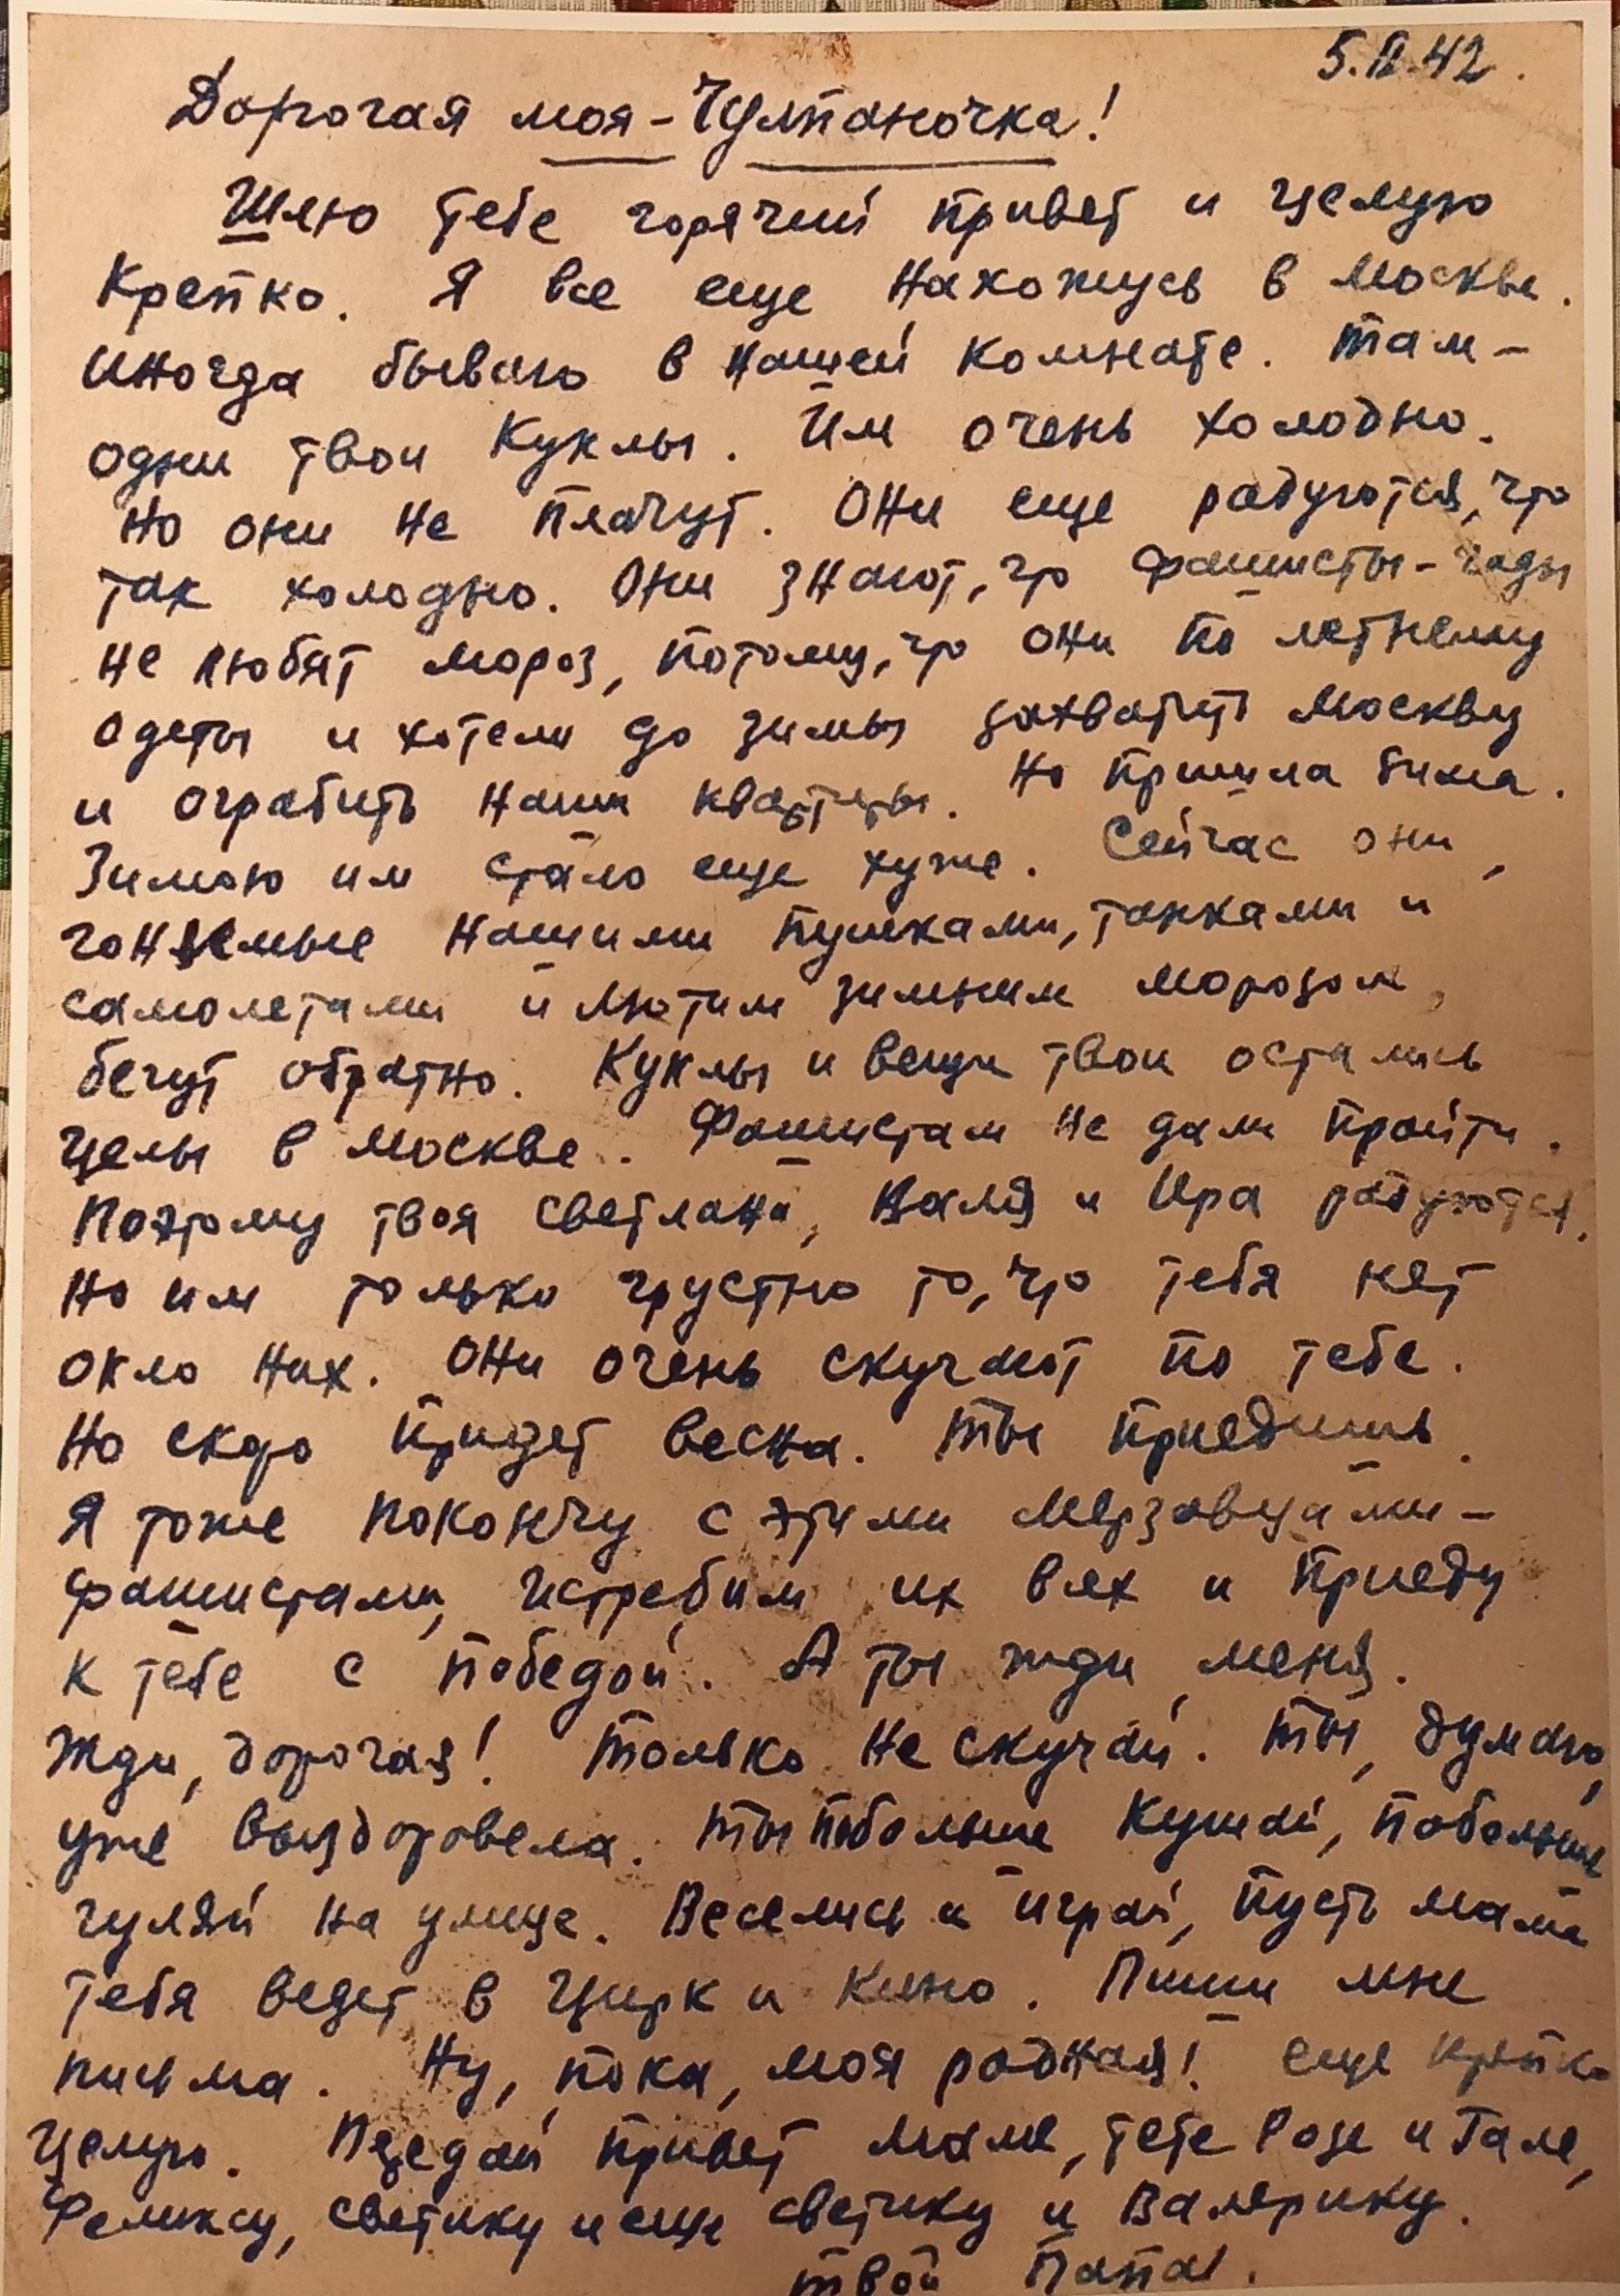 5.II.42.
Дорогая моя – Чулпаночка!
Шлю тебе горячий привет и целую
крепко. Я все еще нахожусь в Москве.
Иногда бываю в нашей комнате. Там –
одни твои куклы. Им очень холодно.
Но они не плачут. Они еще радуются, что
так холодно. Они знают, что фашисты – гады
не любят мороз, потому, что они по летнему
одеты и хотели до зимы захватить Москву
и ограбить наши квартиры. Но пришла зима.
Зимою им стало еще хуже. Сейчас они,
гоняемые нашими пушками, танками и
самолетами и лютим зимним морозом,
бегут обратно. Куклы и вещи твои остались
целы в Москве. Фашистам не дали пройти.
Поэтому твоя Светлана, Валя и Ира радуются.
Но им только грустно то, что тебя нет
окло них. Они очень скучают по тебе.
Но скоро придет весна. Ты приедишь.
Я тоже покончу с этими мерзавцами –
фашистами, истребим их всех и приеду
к тебе с победой. А ты жди меня.
Жди, дорогая! Только не скучай. Ты, думаю,
уже выздоровела. Ты побольше кушай, побольше
гуляй на улице. Веселись и играй, пусть мама
тебя ведет в цирк и кино. Пиши мне
письма. Ну, пока, моя родная! Еще крепко
целую. Передай привет маме, тете Розе и Гале,
Феликсу, Светику и еще Светику и Валерику.
Твой папа.